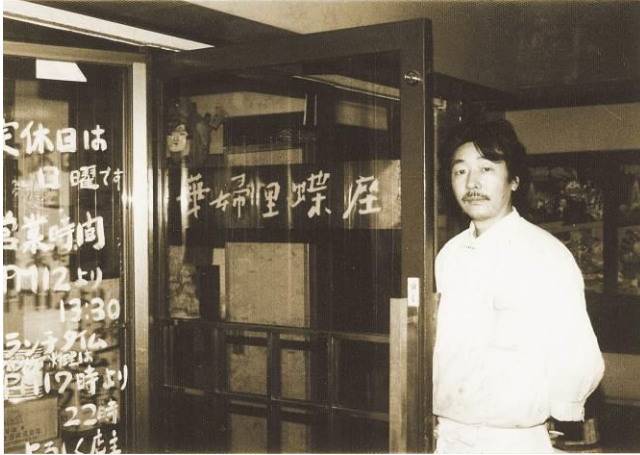 定休日は
日曜です
営業時間
AM12より
13:30
ランチタイム
夜は
PM17時より
22時
よろしく店主
華婦里蝶座